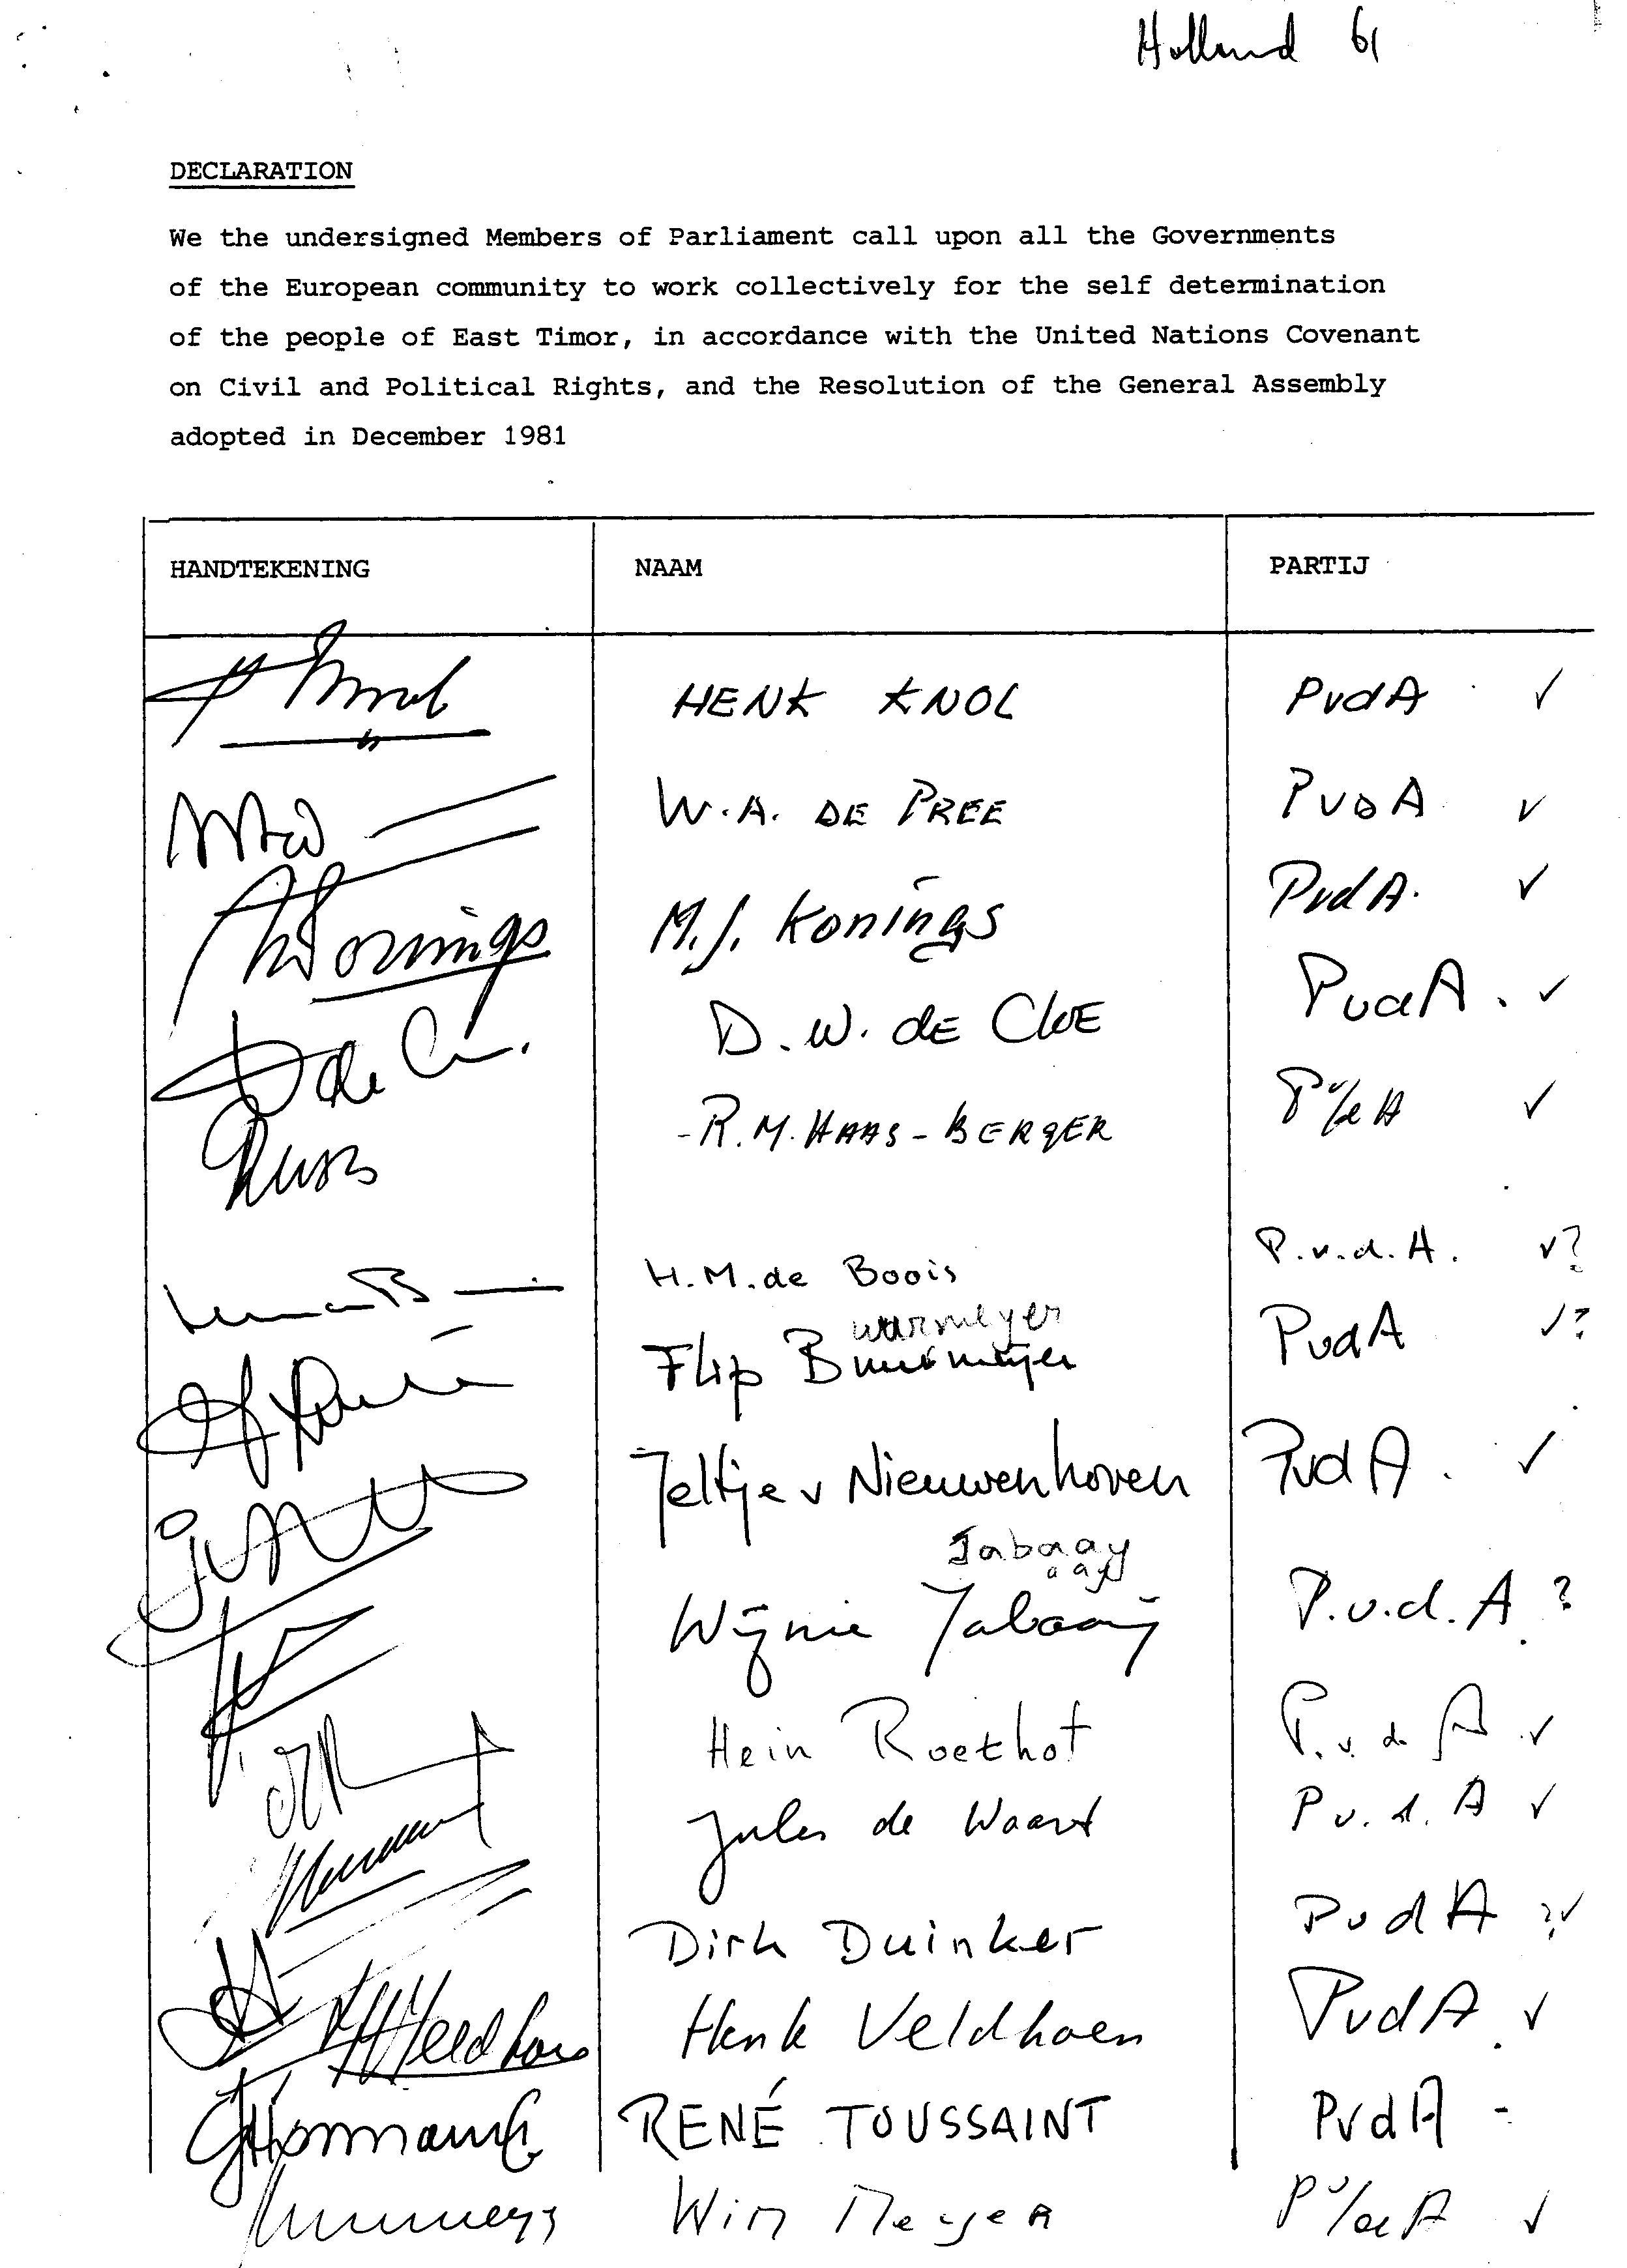 Holland 61
DECLARATION
We the undersigned Members of Parliament call upon all the Governments
of the European community to work collectively for the self determination
of the people of East Timor, in accordance with the United Nations Covenant
on Civil and Political Rights, and the Resolution of the General Assembly
adopted in December 1981
HANDTEKENING NAAM PARTIJ
HENK KNOL PvdA ✓
W.A. DE PREE PVDA ✓
Konings M.J. Konings PvdA. ✓
de D.W. dE CloE PvdA. ✓
- R.M. HAAS - BERGER Pv/dA ✓
H.M. de Boois P.v.d.A. ✓?
uurmeyer
Flip Buurmeijer PvdA ✓?
Jeltje v Nieuwenhoven PvdA. ✓
Jabaay
aay
Wijnie Jabaaij P.v.d.A ?
Hein Roethof P.v.d.A ✓
Jules de Waart P v.d.A ✓
Dirk Duinker PvdA ?✓
Veldhoen Henk Veldhoen PvdA ✓
RENÉ TOUSSAINT PvdA -
Wim Meyer Pv/dA ✓